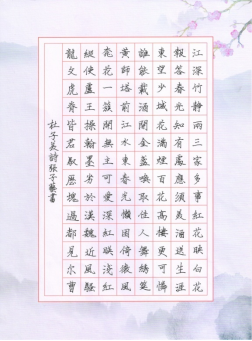 江深竹靜兩三家多事紅花映白花
報答春光知有處應須美酒送生涯
東望少城花滿煙百花高樓更可憐
誰能載酒開金盞喚取佳人舞繡筵
黃師塔前江水東春光懶困倚微風
桃花一簇開無主可愛深紅映淺紅
縱使盧王操翰墨劣於漢魏近風騷
龍文虎脊皆君馭歷塊過都見爾曹
杜子美詩張子藝書